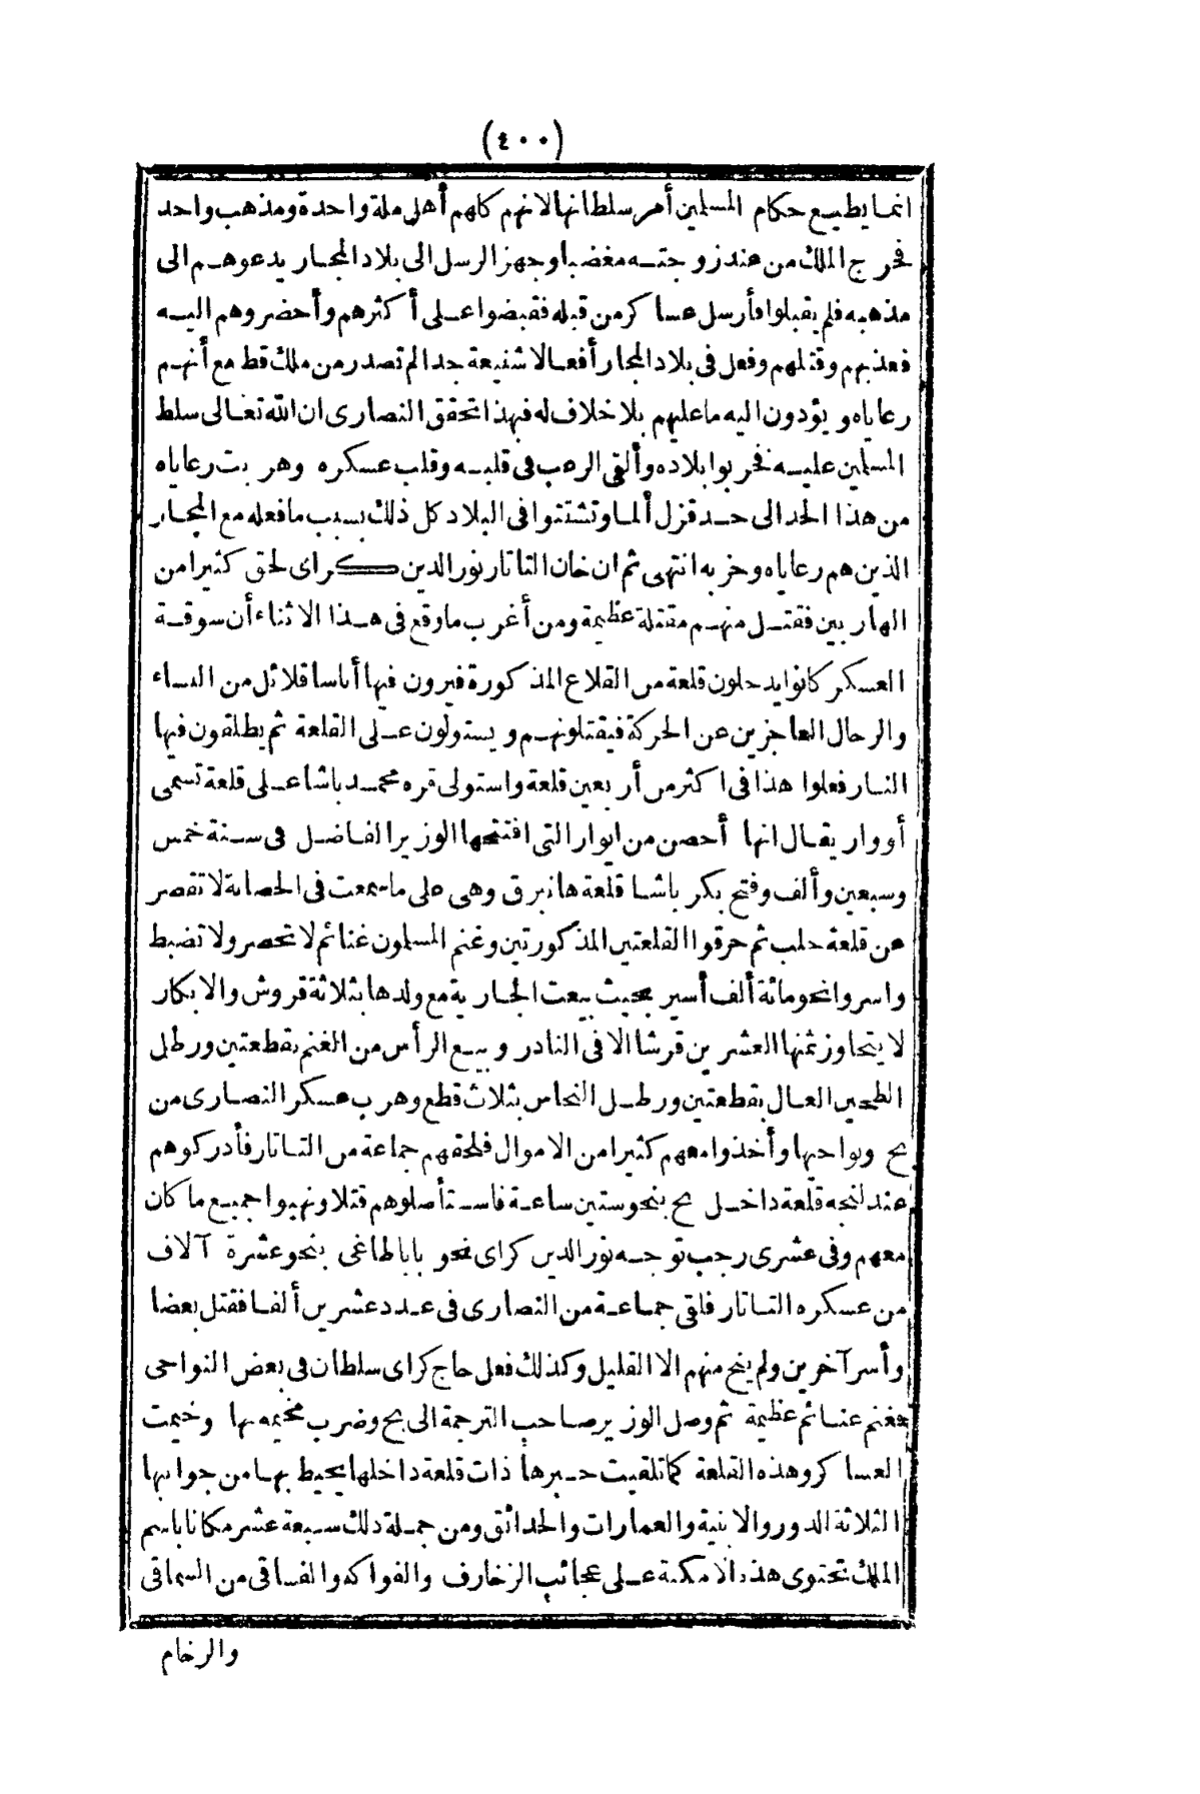 (٤٠٠)
انما يطيع حكام المسلمين أمر سلطانها لانهم كلهم أهل ملة واحدة ومذهب واحد
فخرج الملك من عند زوجته مغضبا وجهز الرسل الى بلاد المجار يدعوهم الى
مذهبه فلم يقبلوا فأرسل عساكر من قبله فقبضوا على أكثرهم وأحضروهم اليه
فعذبهم وقتلهم وفعل فى بلاد المجار أفعالا شنيعة جدا لم تصدر من ملك قط مع أنهم
رعاياه ويؤدون اليه ما عليهم بلا خلاف له فبهذا تحقق النصارى ان الله تعالى سلط
المسلمين عليه فخربوا بلاده وألقى الرعب فى قلبه وقلب عسكره وهربت رعاياه
من هذا الحد الى حد قزل ألما وتشتتوا فى البلاد كل ذلك بسبب ما فعله مع المجار
الذين هم رعاياه وحزبه انتهى ثم ان خان التاتار نور الدين كراى لحق كثيرا من
الهاربين فقتل منهم مقتلة عظيمة ومن أغرب ما وقع فى هذا الاثناء أن سوقة
العسكر كانوا يدخلون قلعة من القلاع المذكورة فيرون فيها أناسا قلائل من النساء
والرجال العاجزين عن الحركة فيقتلونهم ويستولون على القلعة ثم يطلقون فيها
النار فعلوا هذا فى اكثر من أربعين قلعة واستولى قره محمد باشا على قلعة تسمى
أووار يقال انها أحصن من ايوار التى افتتحها الوزير الفاضل فى سنة خمس
وسبعين وألف وفتح بكر باشا قلعة هانبرق وهى على ما سمعت فى الحصانة لا تقصر
عن قلعة حلب ثم حرقوا القلعتين المذكورتين وغنم المسلمون غنائم لا تحصر ولا تضبط
واسروا نحو مائة ألف أسير بحيث بيعت الجارية مع ولدها بثلاثة قروش والابكار
لا يتجاوز ثمنها العشرين قرشا الا فى النادر وبيع الرأس من الغنم بقطعتين ورطل
الطحين العال بقطعتين ورطل النحاس بثلاث قطع وهرب عسكر النصارى من
بج ونواحيها وأخذوا معهم كثيرا من الاموال فلحقهم جماعة من التاتار فأدركوهم
عند لنجه قلعة داخل بج بنحو ستين ساعة فاستأصلوهم قتلا ونهبوا جميع ما كان
معهم وفى عشرى رجب توجه نور الدين كراى نحو باباطاغى بنحو عشرة آلاف
من عسكره التاتار فلقى جماعة من النصارى فى عدد عشرين ألفا فقتل بعضا
وأسر آخرين ولم ينج منهم الا القليل وكذلك فعل حاج كراى سلطان فى بعض النواحى
فغنم غنائم عظيمة ثم وصل الوزير صاحب الترجمة الى بج وضرب مخيمه بها وخيمت
العساكر وهذه القلعة كما تلقيت خبرها ذات قلعة داخلها يحيط بها من جوانبها
الثلاثة الدور والابنية والعمارات والحدائق ومن جملة ذلك سبعة عشر مكانا باسم
الملك تحتوى هذه الامكنة على عجائب الزخارف والفواكه والفساقى من السماقى
والرخام